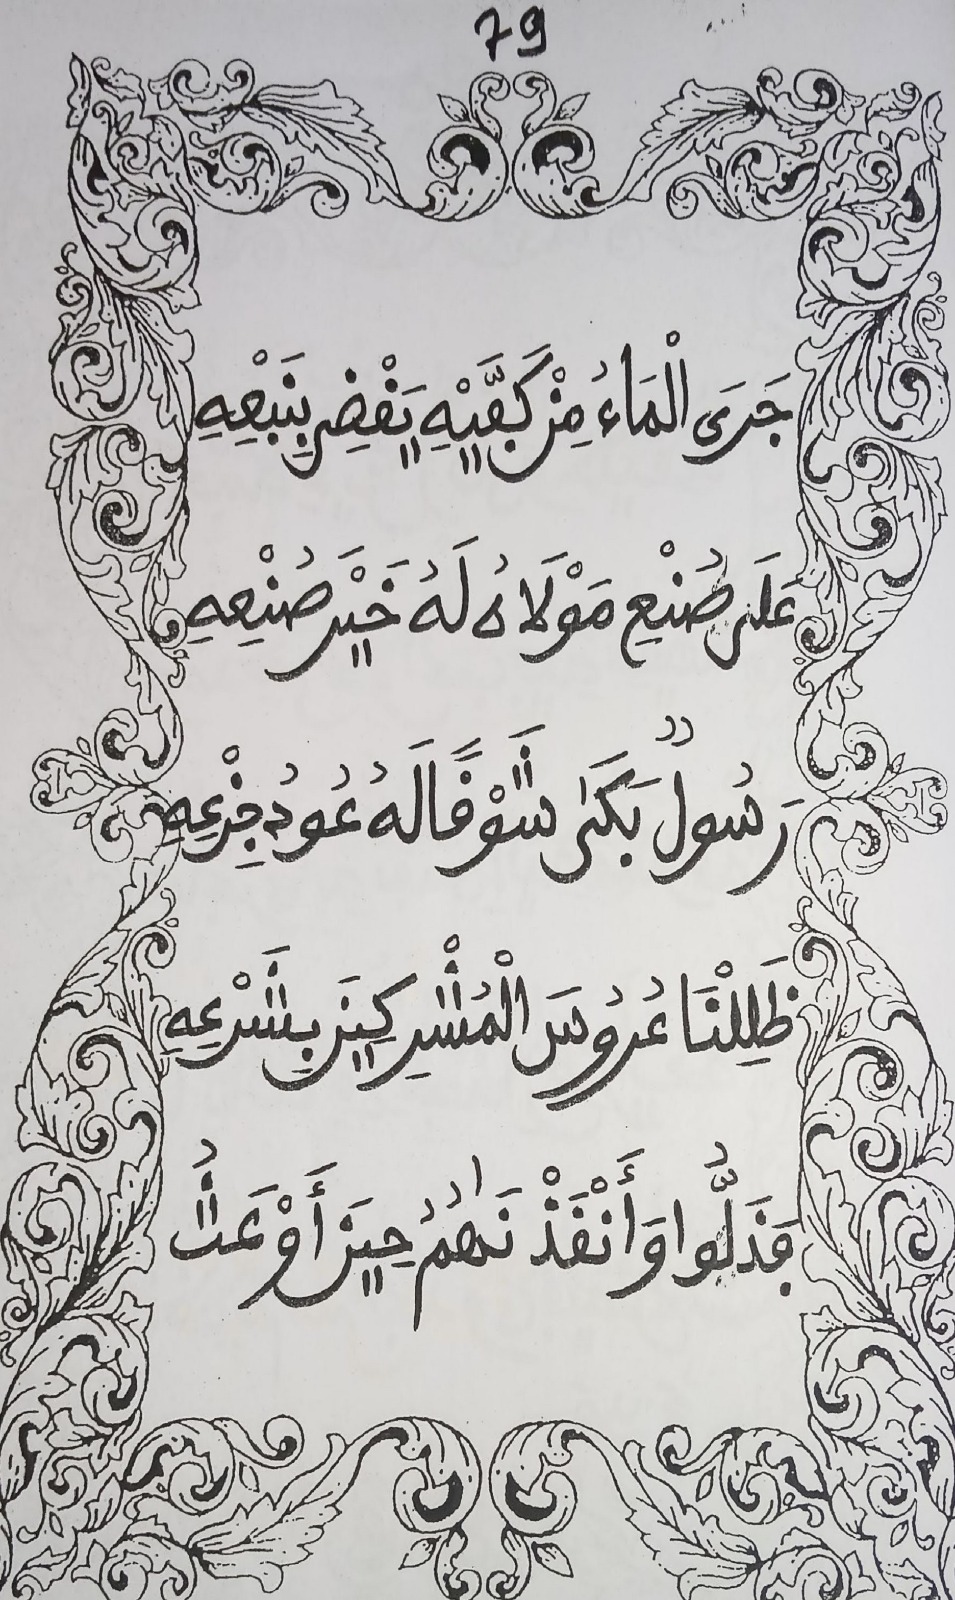 79
جَرَى الْمَاءُ مِنْ كَفَّيْهِ يَقْضِ بِنَبْعِهِ
عَلَى صُنْعِ مَوْلَاهُ لَهُ خَيْرَ صُنْعِهِ
رَسُولٌ بَكَى شَوْقًا لَهُ عُودُ جِذْعِهِ
ظَلِلْنَا عُرُوسَ الْمُشْرِكِينَ بِشَرْعِهِ
فَذَلُّوا وَأَنْقَذْنَاهُمُ حِينَ أَوْعَثُ